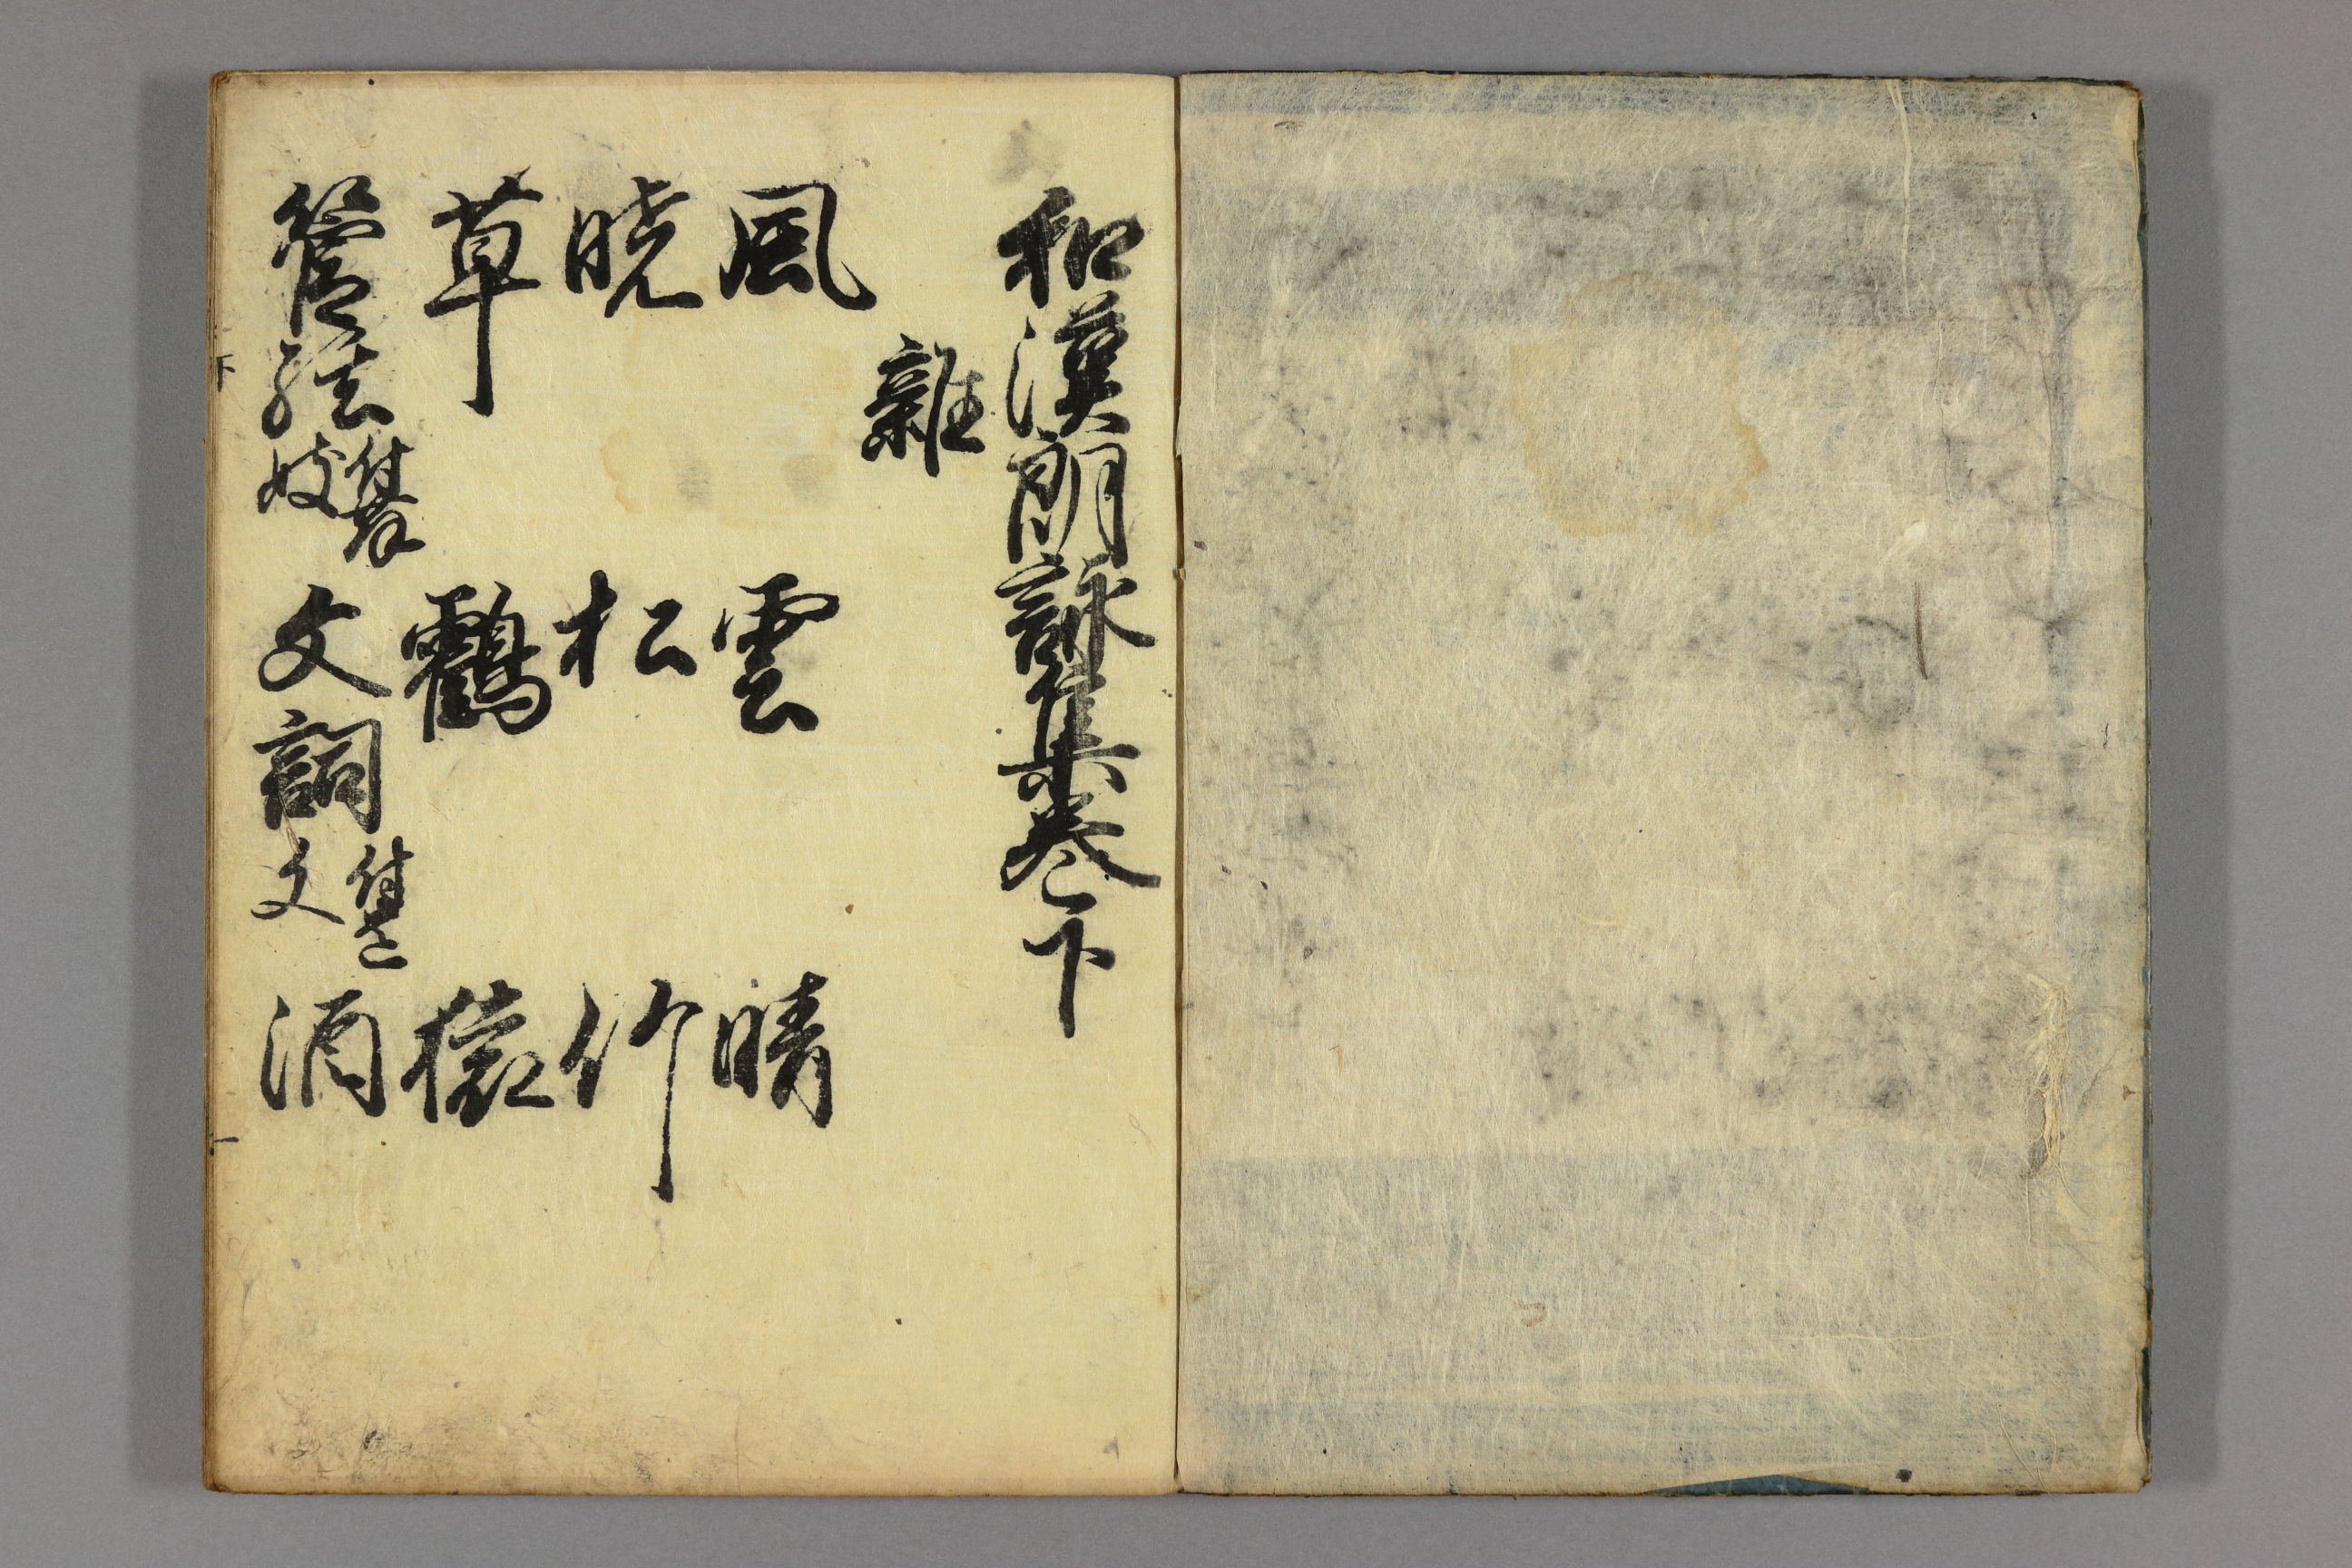 和漢朗詠集巻下
雜
風 雲 晴
暁 松 竹
草 靏 猿
管絃 付舞妓 文詞 付遺文 酒
下 一